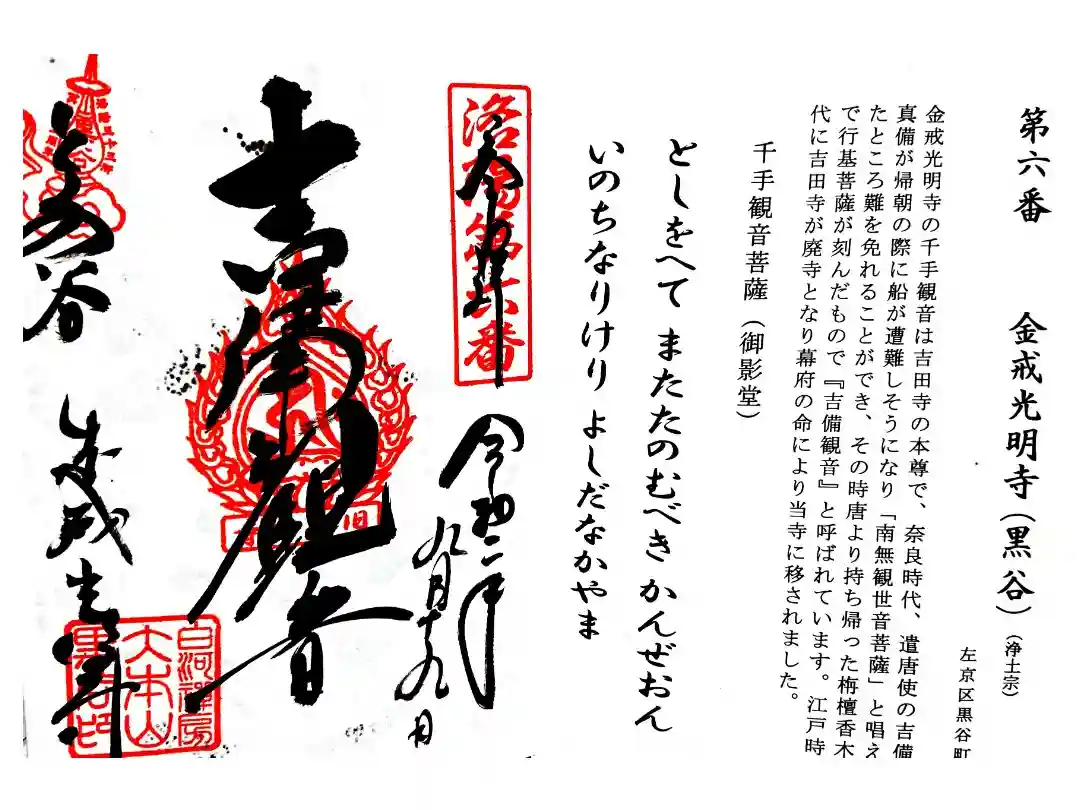 第六番 金戒光明寺(黒谷)(浄土宗)
左京区黒谷町
金戒光明寺の千手観音は吉田寺の本尊で、奈良時代、遣唐使の吉備
真備が帰朝の際に船が遭難しそうになり「南無観世音菩薩」と唱え
たところ難を免れることができ、その時唐より持ち帰った栴檀香木
で行基菩薩が刻んだもので『吉備観音』と呼ばれています。江戸時
代に吉田寺が廃寺となり幕府の命により当寺に移されました。
千手観音菩薩(御影堂)
としをへて またたのむべき かんぜおん
いのちなりけり よしだなかやま
洛陽第六番
奉拝
令和二年
九月十九日
吉備観音
谷
金戒光明寺
白河禅房
大本山
黒谷印